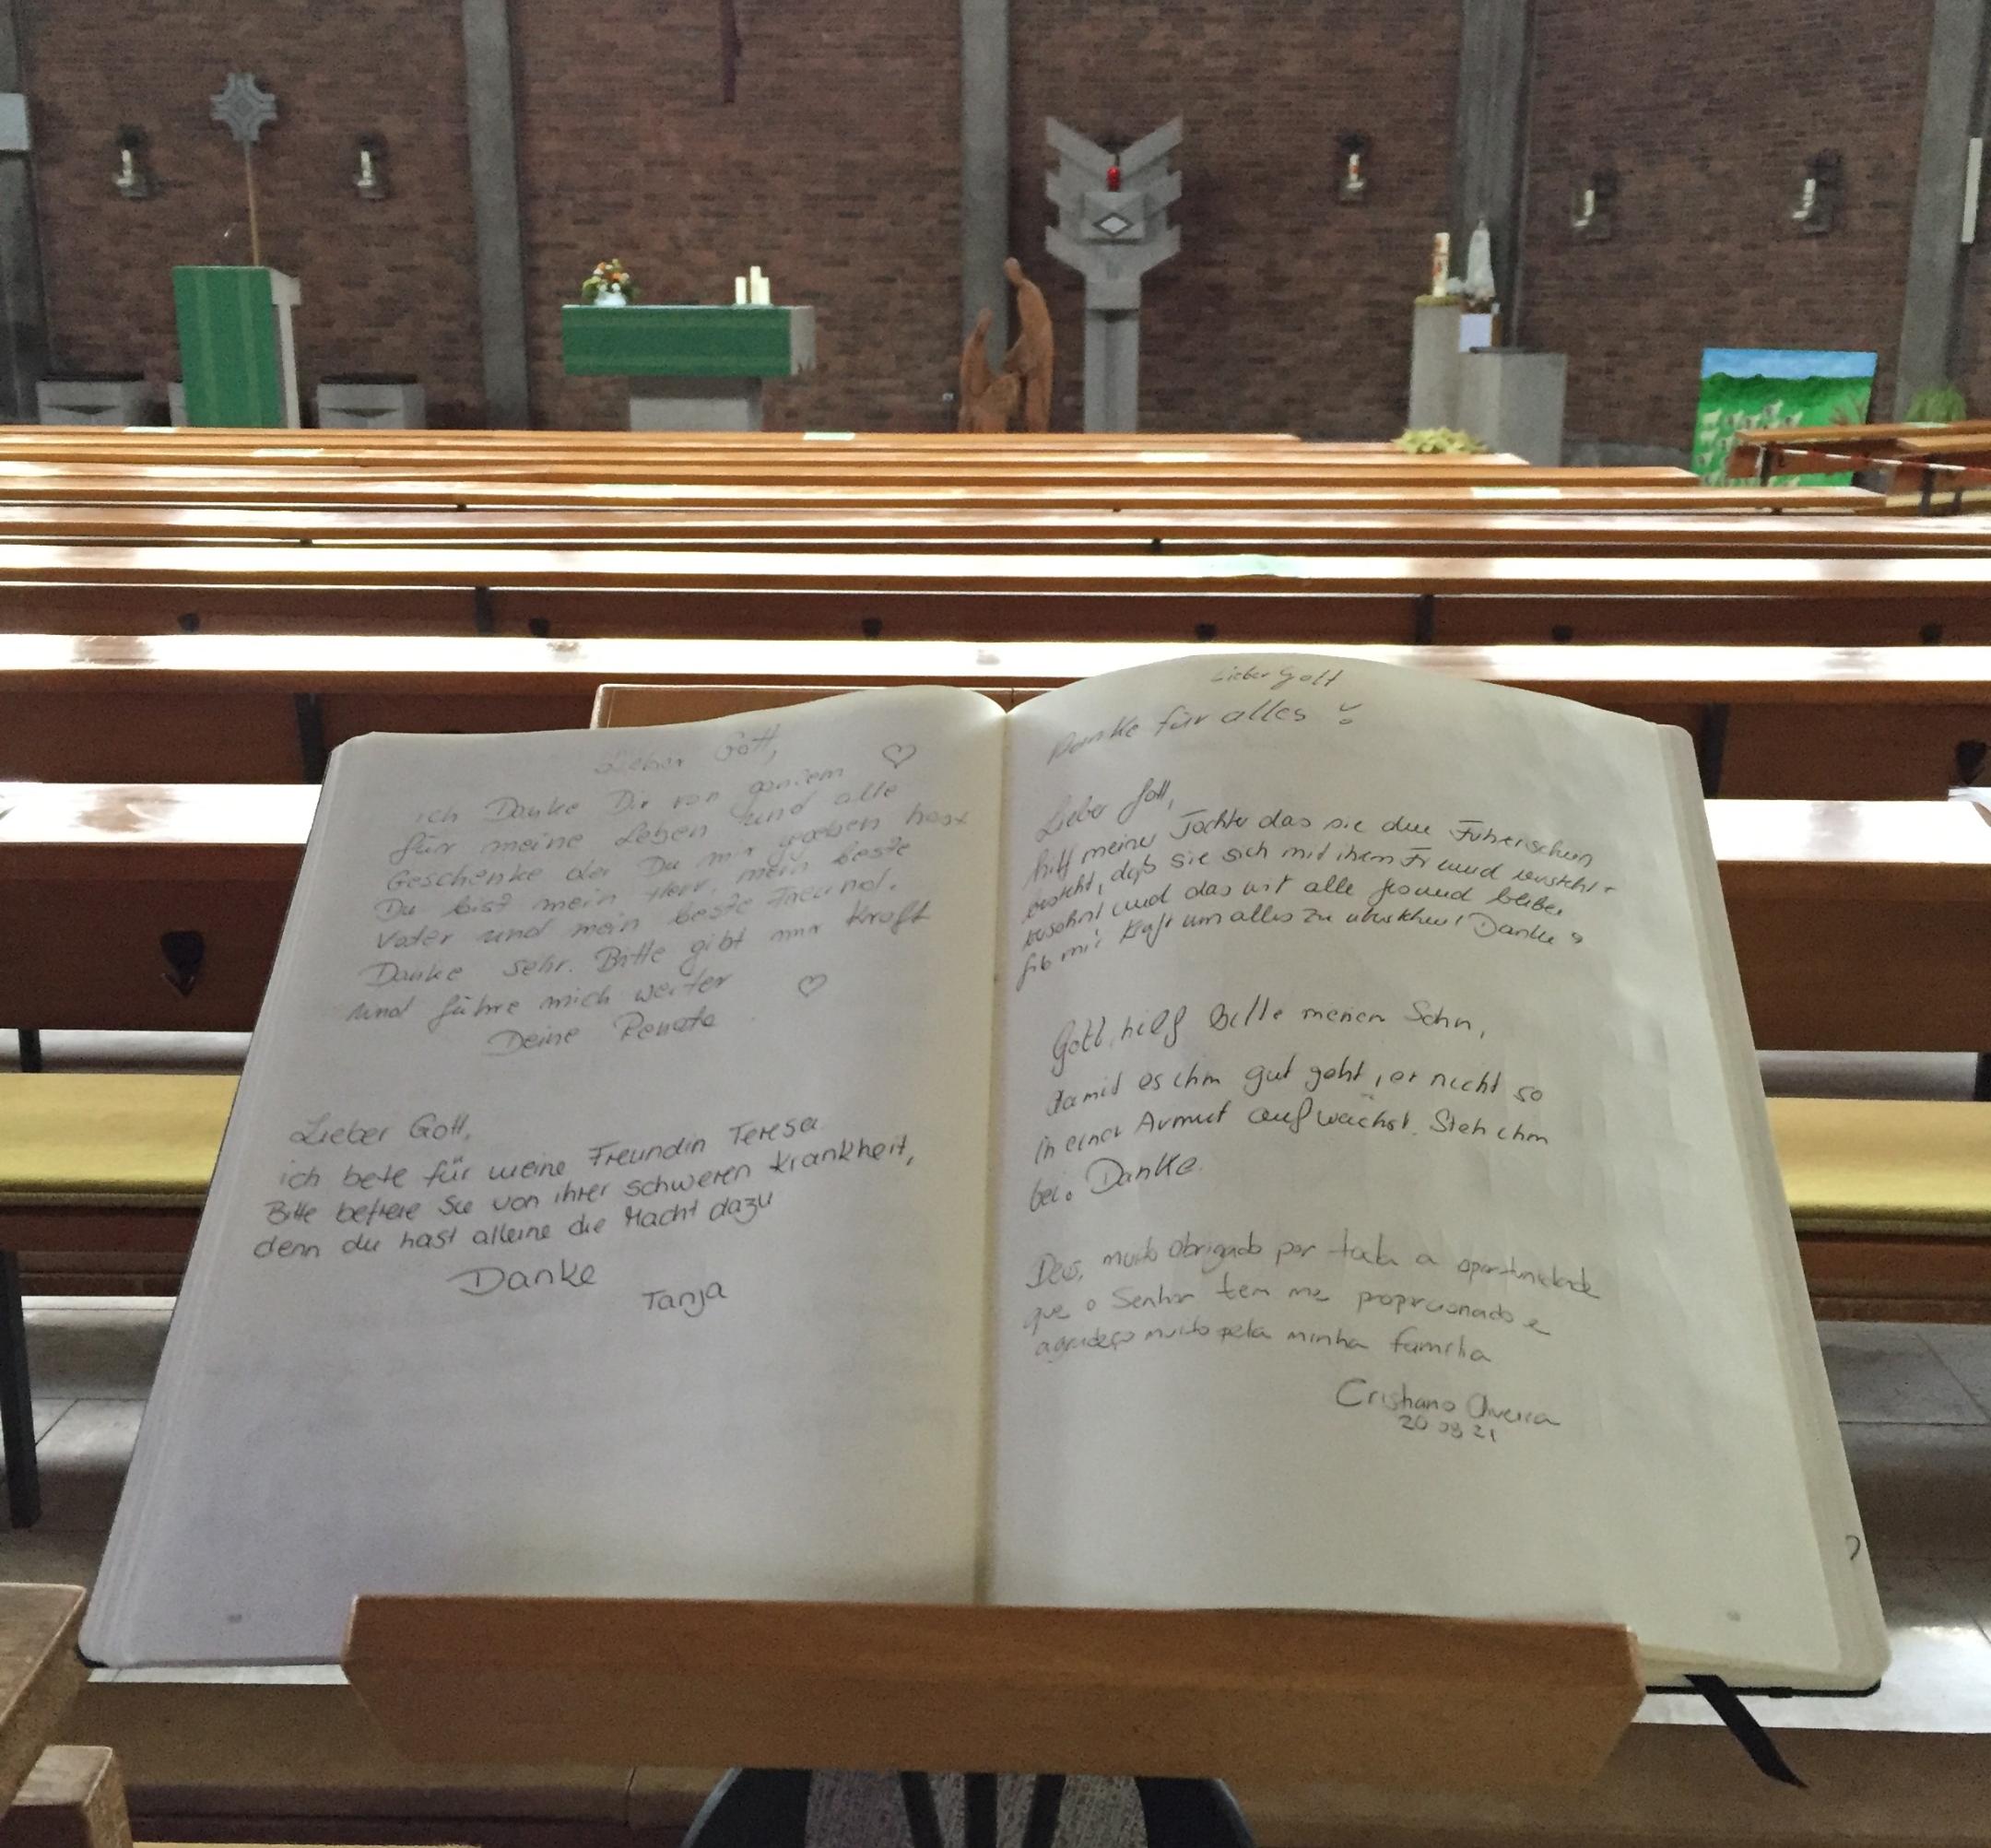 Lieber Gott,
ich Danke Dir von ganzem
für meine Leben und alle
Geschenke die Du mir geben hast
Du bist mein Herr, mein beste
Vater und mein beste Freund.
Danke sehr. Bitte gibt mir Kraft
und führe mich weiter
Deine Renata
Lieber Gott,
ich bete für meine Freundin Teresa
Bitte befreie Sie von ihrer schweren Krankheit,
denn du hast alleine die Macht dazu
Danke
Tanja
Lieber Gott
Danke für alles
Lieber Gott,
hilf meiner Tochter das sie den Führerschein
besteht, daß sie sich mit ihrem Freund
versöhnt und das wir alle gesund bleiben
Gib mir Kraft um alles zu überstehen! Danke
Gott, hilf Bitte meinen Sohn,
damit es ihm gut geht, er nicht so
in einer Armut aufwächst. Steh ihm
bei. Danke.
Deus, muito obrigado por toda a oportunidade
que o Senhor tem me proporcionado e
agradeço muito pela minha família
Cristiano Oliveira
20 09 21